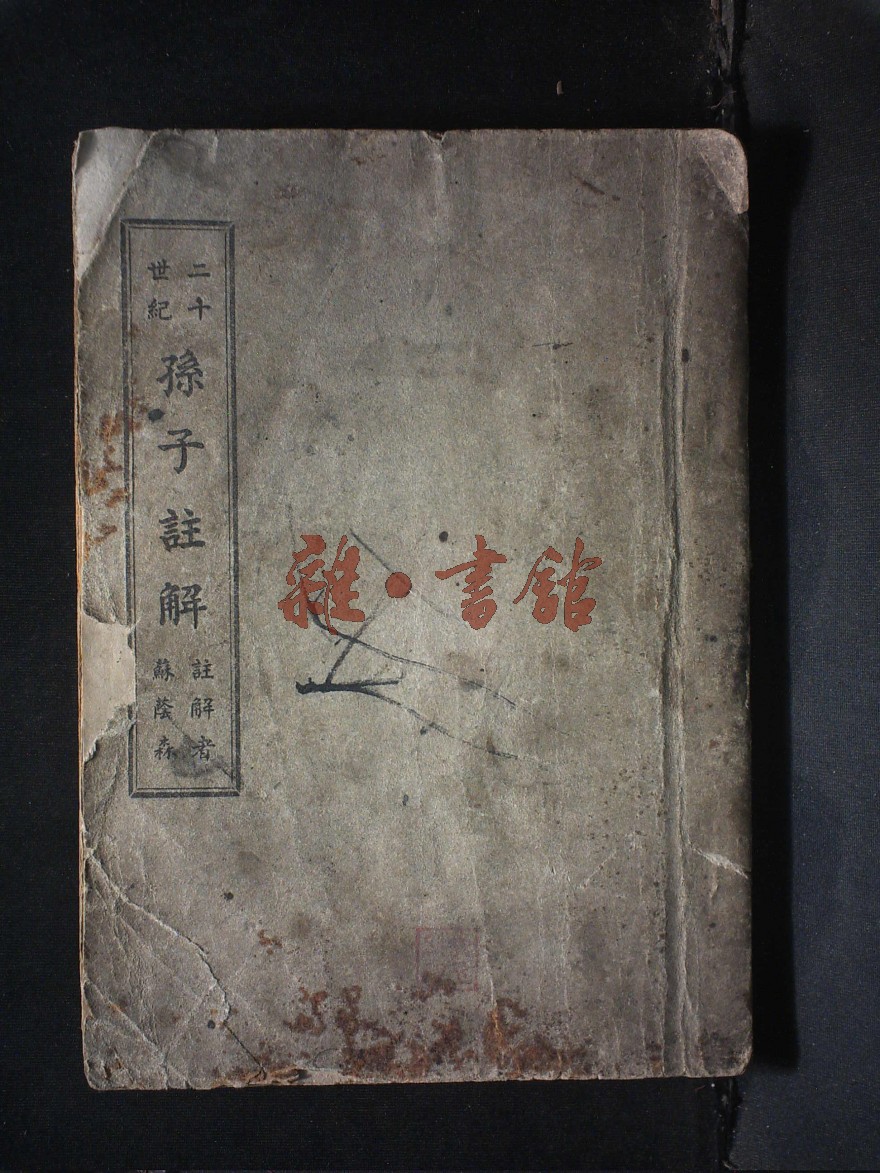 二十
世紀
孫子註解
註解者
蘇蔭森
雜·書館